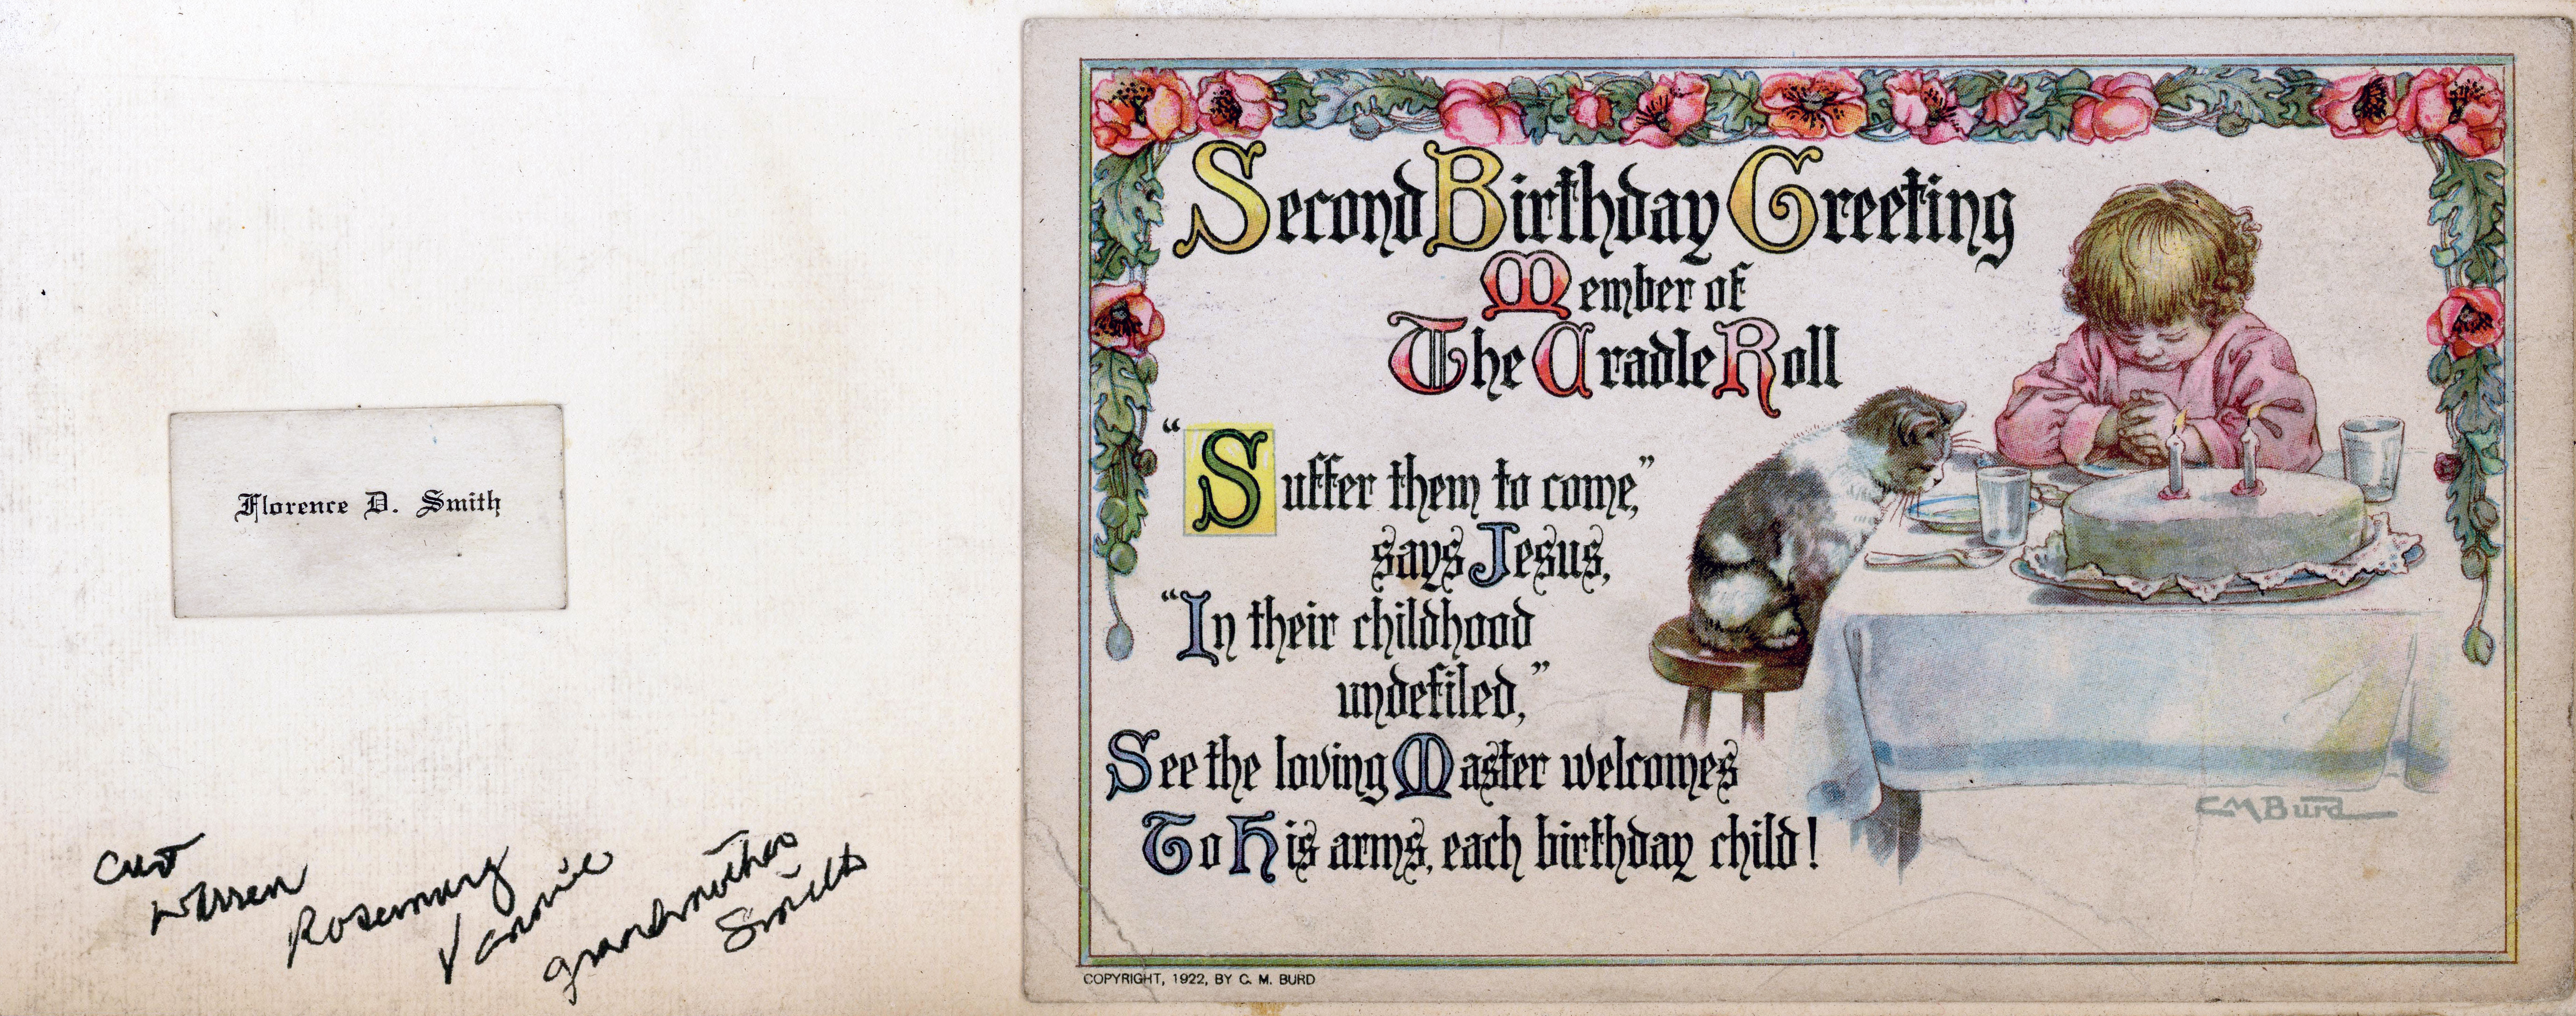 Florence D. Smith
Curt
Warren
Rosemary
Vannie
grandmother
Smith
Second Birthday Greeting
Member of
The Cradle Roll
“Suffer them to come,”
says Jesus,
“In their childhood
undefiled,”
See the loving Master welcomes
To His arms, each birthday child!
CMBurd
COPYRIGHT, 1922, BY C. M. BURD